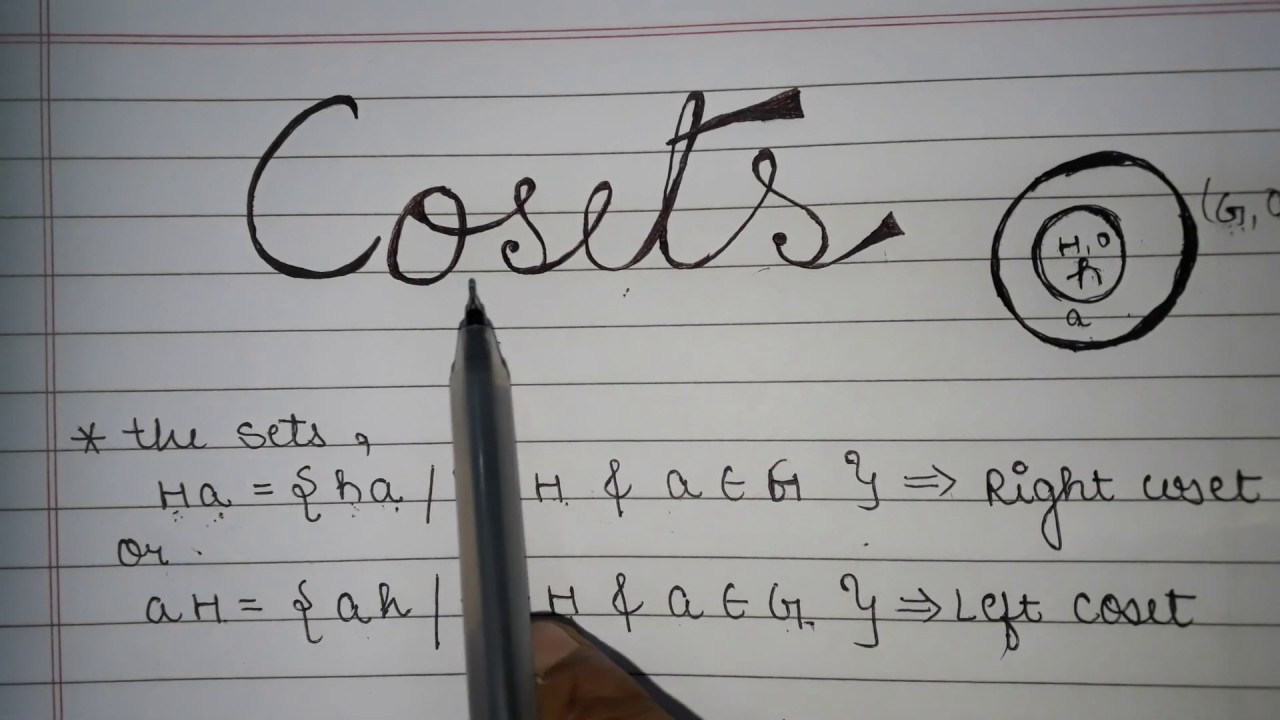 Cosets.
(G,
H, o
h
a
* the sets,
Ha = {ha / H & a ∈ G } ⇒ Right coset
or
aH = {ah / H & a ∈ G } ⇒ Left coset